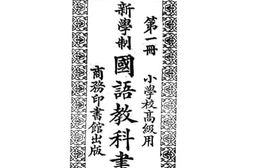 第一冊
小學校高級用
新學制
國語教科書
商務印書館出版